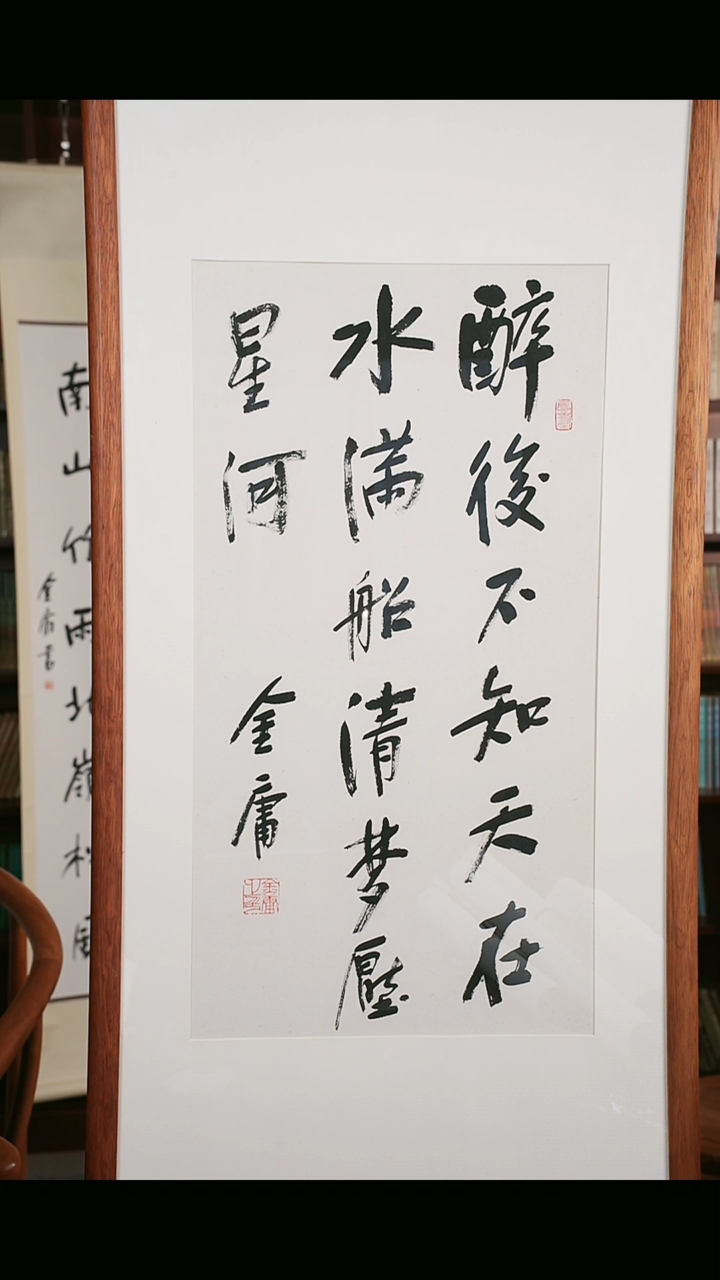 醉後不知天在
水满船清梦壓
星河
金庸
金庸之印
南山竹雨北嶺松風
金庸書